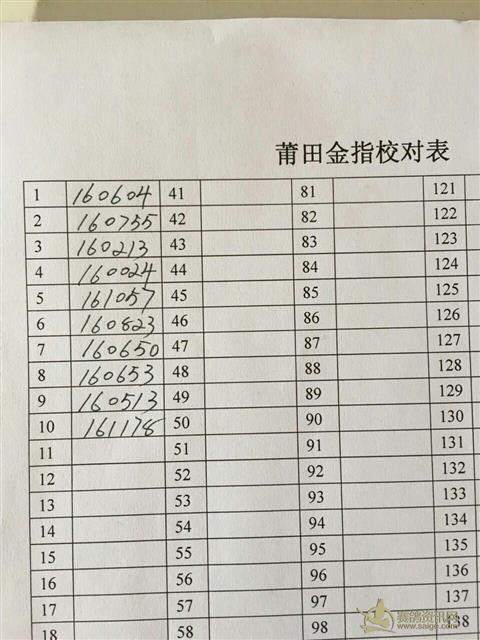 莆田金指校对表
1 160604 41 81 121
2 160755 42 82 122
3 160213 43 83 123
4 160024 44 84 124
5 161057 45 85 125
6 160823 46 86 126
7 160650 47 87 127
8 160653 48 88 128
9 160513 49 89 129
10 161178 50 90 130
11 51 91 131
12 52 92 132
13 53 93 133
14 54 94 134
15 55 95 135
16 56 96 136
17 57 97 137
18 58 98 138
赛鸽资讯网
www.saige.com